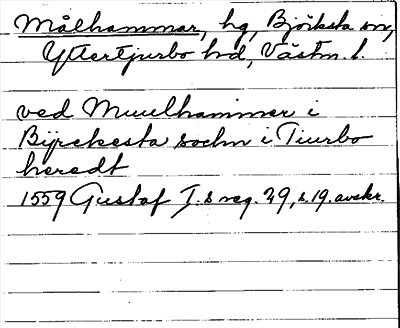 Målhammar, hg, Björksta sn,
Yttertjurbo hd, Västm. l.
ved Muulhammer i
Bijrckesta sochn i Tiurbo
heredt
1559 Gustaf I:s reg. 29, s. 19. avskr.